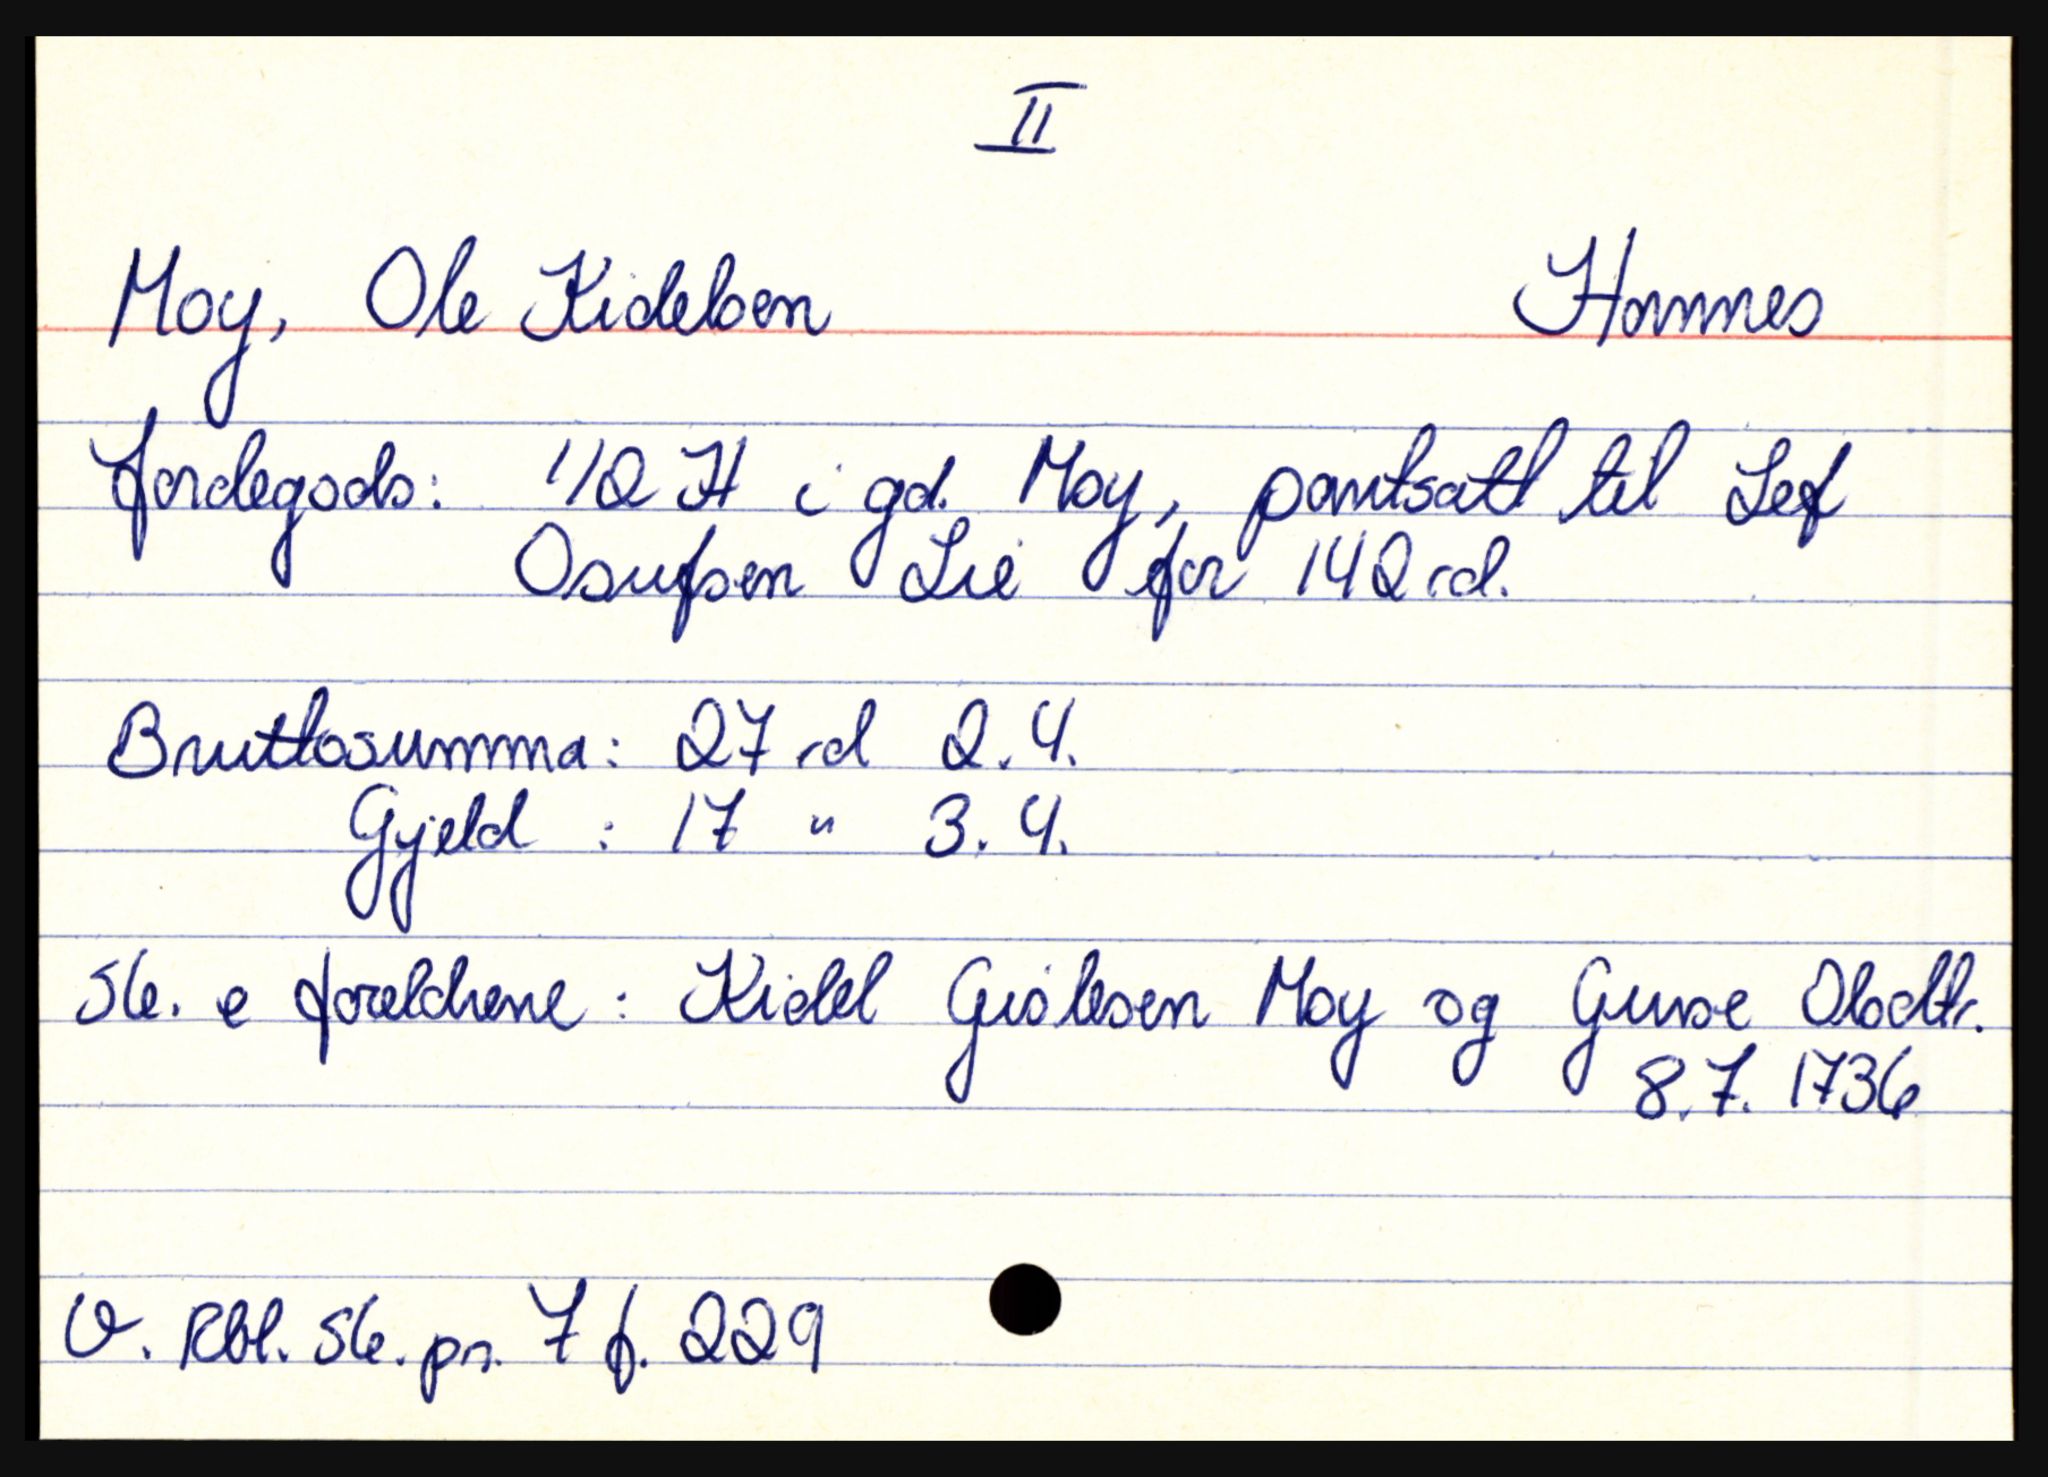 II
Moy, Ole Kidelsen Hornnes
Jordegods: 1/2 H i gd. Moy, pantsatt til Lef
Osufsen Lie for 142 rd.
Bruttosumma: 27 rd 2. 4.
Gjeld : 17 " 3. 4.
Sk. e foreldrene : Kidel Gislesen Moy og Gunse Olsdtr.
8.7. 1736
V. Rbl. Sk. pr. 7 f. 229